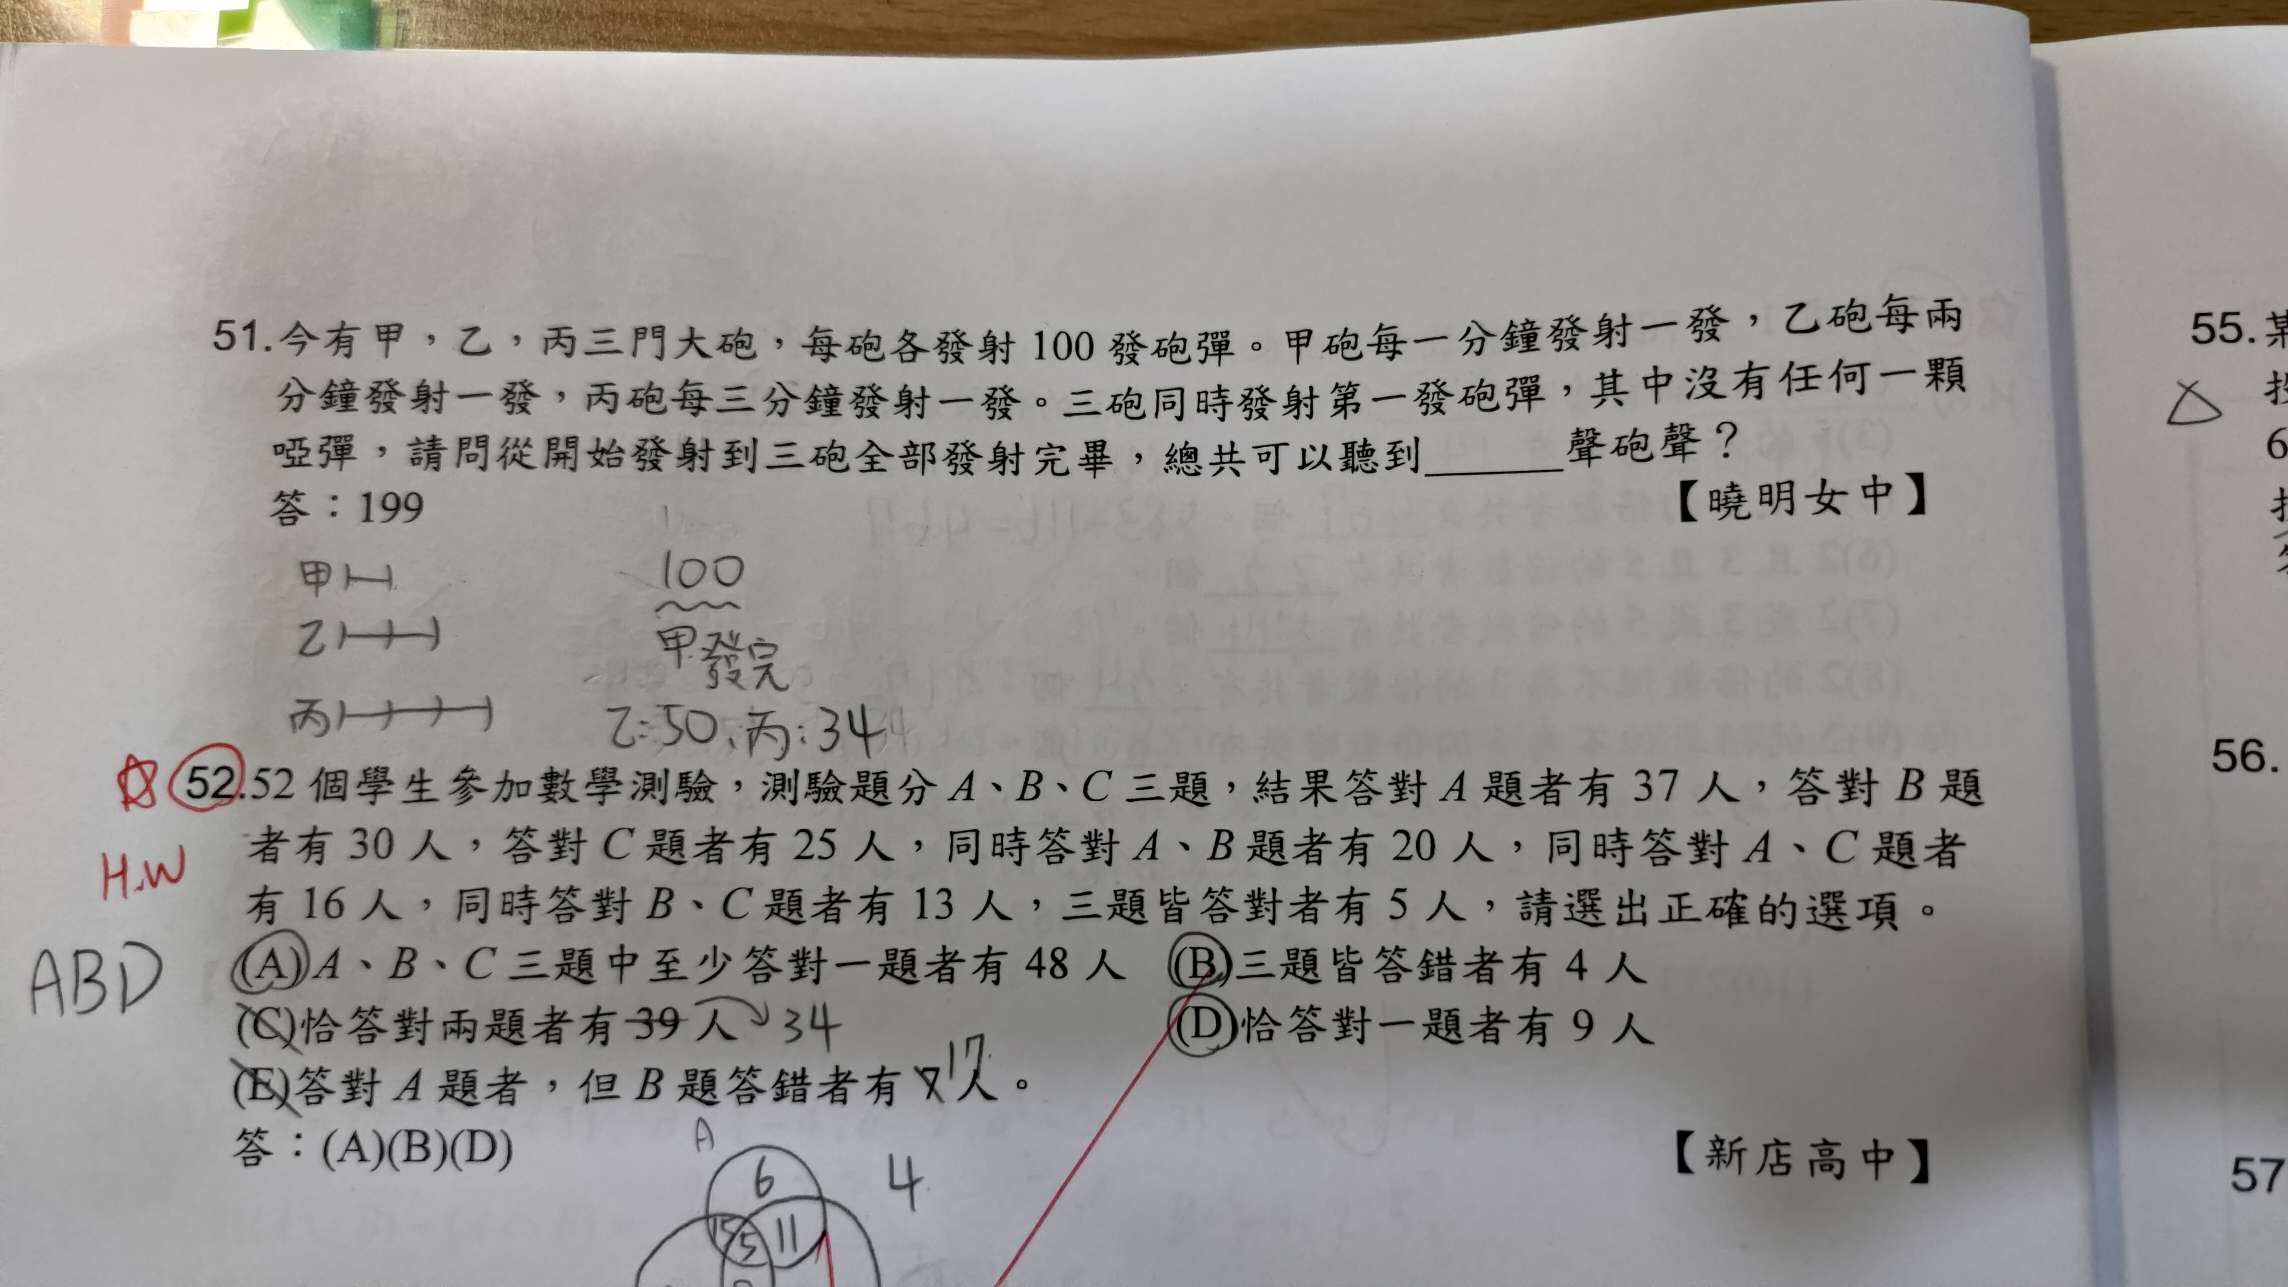 51.今有甲，乙，丙三門大砲，每砲各發射 100 發砲彈。甲砲每一分鐘發射一發，乙砲每兩
分鐘發射一發，丙砲每三分鐘發射一發。三砲同時發射第一發砲彈，其中沒有任何一顆
啞彈，請問從開始發射到三砲全部發射完畢，總共可以聽到______聲砲聲？
答：199
【曉明女中】
甲
乙
丙
100
甲發完
乙:50、丙:34
52.52 個學生參加數學測驗，測驗題分 A、B、C 三題，結果答對 A 題者有 37 人，答對 B 題
H.W
者有 30 人，答對 C 題者有 25 人，同時答對 A、B 題者有 20 人，同時答對 A、C 題者
有 16 人，同時答對 B、C 題者有 13 人，三題皆答對者有 5 人，請選出正確的選項。
ABD
(A)A、B、C 三題中至少答對一題者有 48 人 (B)三題皆答錯者有 4 人
(C)恰答對兩題者有 39 人 34 (D)恰答對一題者有 9 人
(E)答對 A 題者，但 B 題答錯者有 7 人。 17
答：(A)(B)(D)
【新店高中】
A
6
4
15
5
11
55.某
6
56.
57